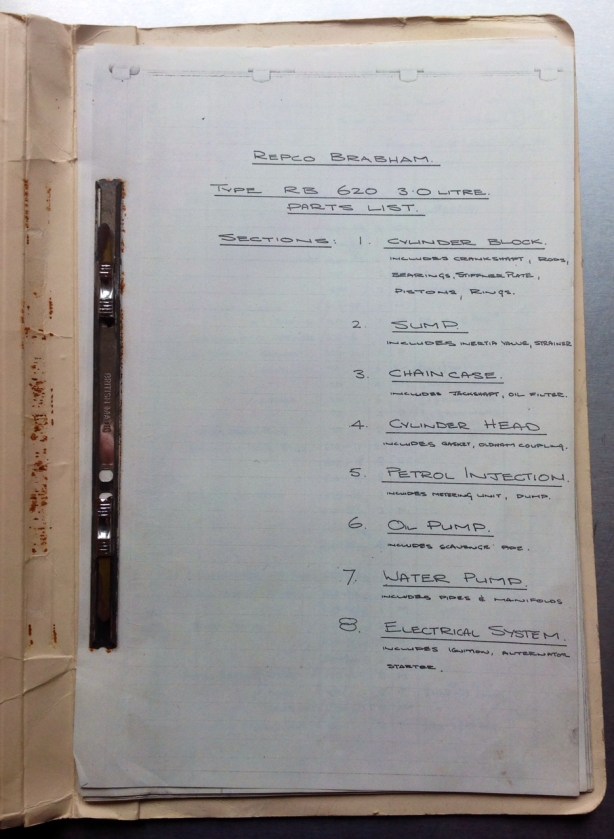 REPCO BRABHAM.
TYPE RB 620 3.0 LITRE.
PARTS LIST.
SECTIONS: 1. CYLINDER BLOCK.
INCLUDES CRANKSHAFT, RODS,
BEARINGS, STIFFLER PLATE,
PISTONS, RINGS.
2. SUMP.
INCLUDES INERTIA VALVE, STRAINER
3. CHAINCASE.
INCLUDES JACKSHAFT, OIL FILTER.
4. CYLINDER HEAD
INCLUDES GASKET, OLDHAM COUPLING.
5. PETROL INJECTION.
INCLUDES METERING UNIT, PUMP.
6. OIL PUMP.
INCLUDES SCAVENGE PIPE.
7. WATER PUMP.
INCLUDES PIPES & MANIFOLDS
8. ELECTRICAL SYSTEM.
INCLUDES IGNITION, ALTERNATOR
STARTER.